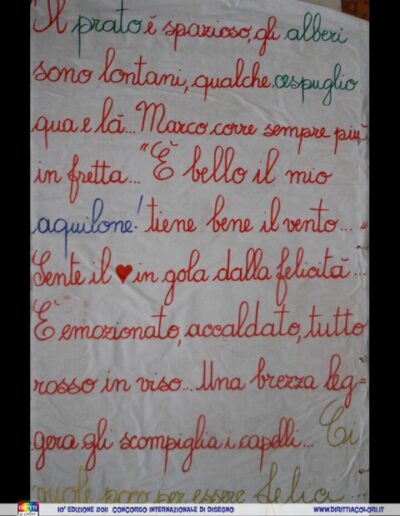 Il prato é spazioso, gli alberi
sono lontani, qualche cespuglio
qua e lá... Marco corre sempre più
in fretta... "È bello il mio
aquilone! tiene bene il vento..."
Sente il ♥ in gola dalla felicitá...
É emozionato, accaldato, tutto
rosso in viso... Una brezza leg=
gera gli scompiglia i capelli... Ci
vuole poco per essere felici...
10ª EDIZIONE 2011 CONCORSO INTERNAZIONALE DI DISEGNO WWW.DIRITTIACOLORI.IT